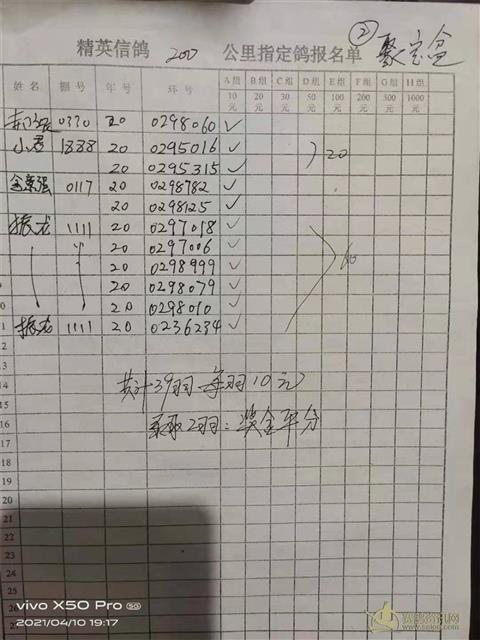 ② 聚宝盆
精英信鸽 200 公里指定鸽报名单
姓名 棚号 年号 环号 A组 B组 C组 D组 E组 F组 G组 H组
10元 20元 30元 50元 100元 200元 500元 1000元
0770 20 0298060 ✓
小君 1888 20 0295016 ✓ 20
20 0295315 ✓
金荣强 0117 20 0298782 ✓
20 0298125 ✓
振龙 1111 20 0297018 ✓
20 0297006 ✓ 60
20 0298999 ✓
20 0298079 ✓
20 0298010 ✓
1 振龙 1111 20 0236234 ✓
2
13
14 共计39羽 每羽10元
15
16 录取2羽：奖金平分
17
18
19
20
21
22
23
vivo X50 Pro 5G
2021/04/10 19:17